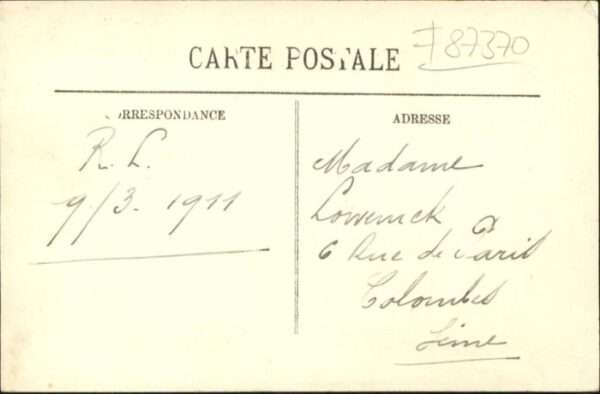 F87370
CARTE POSTALE
CORRESPONDANCE
ADRESSE
R. L.
9/3. 1911
Madame
6 Rue de Paris
Colombes
Seine